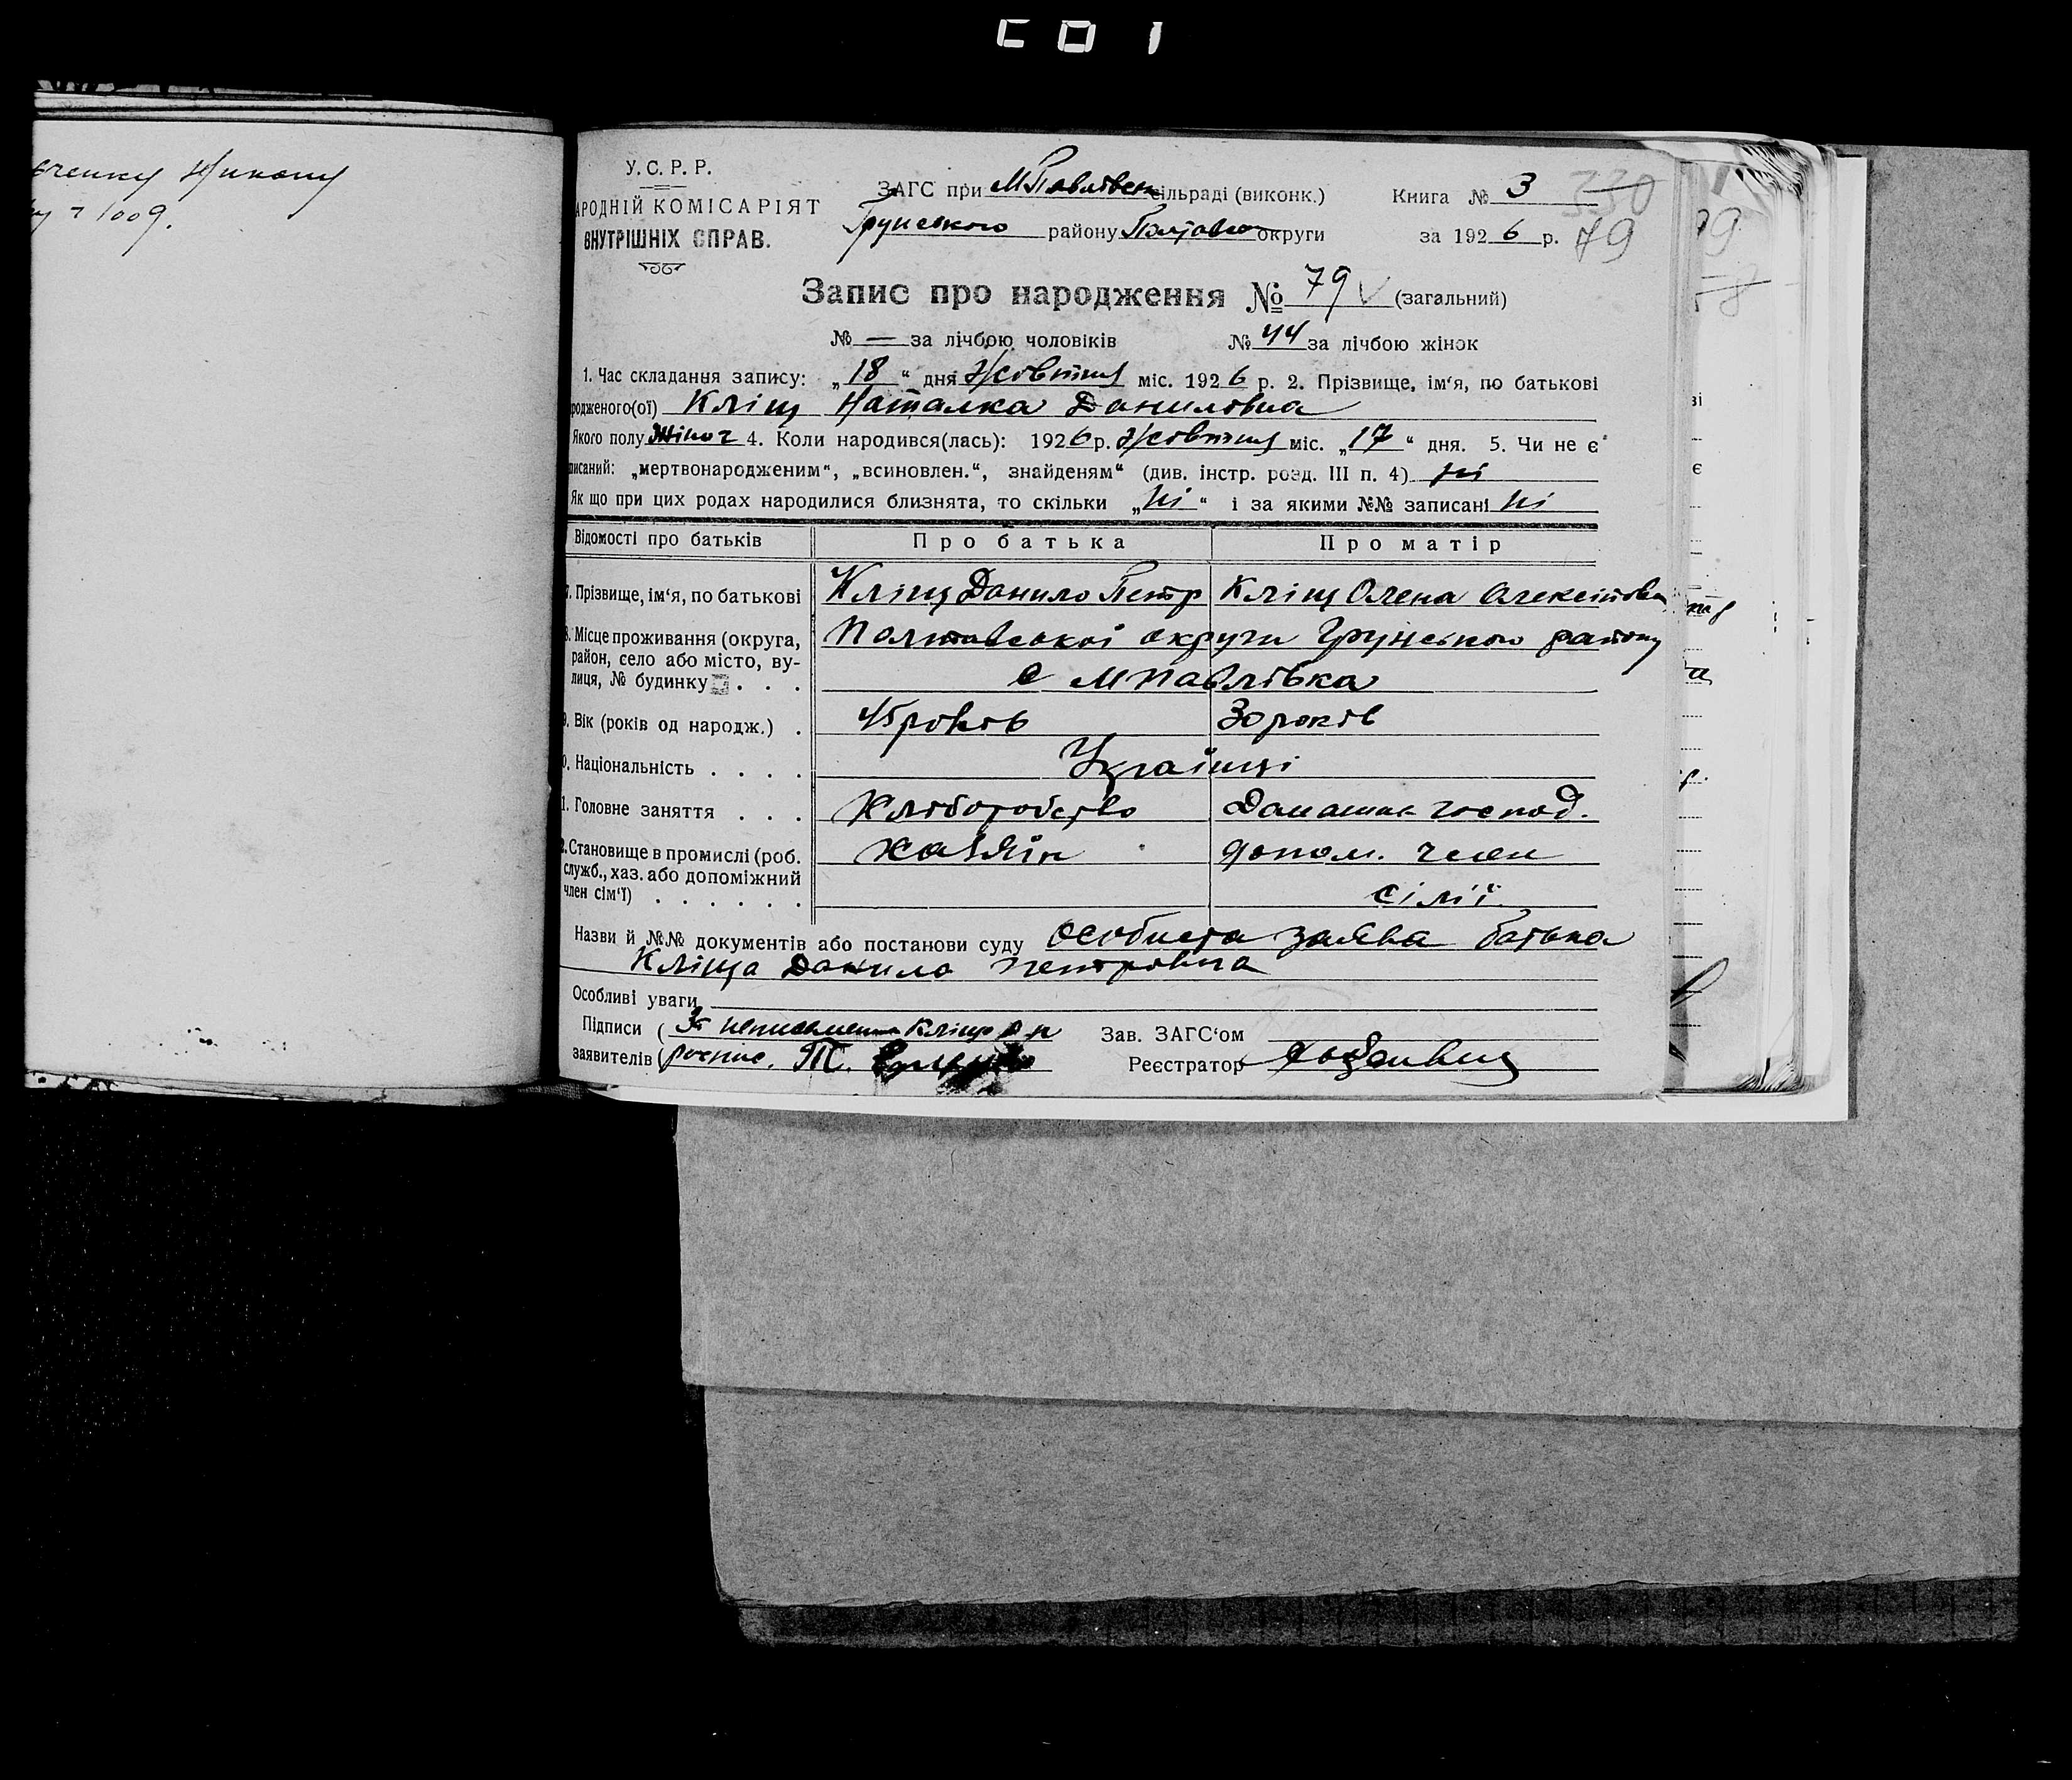 У. С. Р. Р.
АРОДНІЙ КОМІСАРІЯТ
ВНУТРІШНІХ СПРАВ.
ЗАГС при МПавлівськ сільраді (виконк.)
Грунського району Полтавської округи
Книга № 3
за 1926 р.
330
79
Запис про народження № 79 (загальний)
№ — за лічбою чоловіків № 44 за лічбою жінок
1. Час складання запису: „18“ дня Жовтня міс. 1926 р. 2. Прізвище, ім‘я, по батькові
родженого(ої) Кліщ Наталка Даниловна
Якого полу Жіноч 4. Коли народився(лась): 1926 р. Жовтня міс. „17“ дня. 5. Чи не є
писаний: „мертвонародженим“, „всиновлен.“, знайденям“ (див. інстр. розд. III п. 4) ні
Як що при цих родах народилися близнята, то скільки „ні“ і за якими №№ записані ні
Відомості про батьків Про батька Про матір
7. Прізвище, ім‘я, по батькові Кліщ Данило Петр Кліщ Олена Олексіїовна
8. Місце проживання (округа, Полтавської округи Грунського району
район, село або місто, ву-
лиця, № будинку . . . с МПавлівка
9. Вік (років од народж.) . 45 років 30 років
0. Національність . . . . Українці
1. Головне заняття . . . Хліборобство Домашнє господ.
2. Становище в промислі (роб. хазяїн допом. член
служб., хаз. або допоміжний
член сім‘ї) . . . . . . сімії.
Назви й №№ документів або постанови суду особиста заява батька
Кліща Данила Петровича
Особливі уваги
Підписи ( За неписьменн Кліща Д П Зав. ЗАГС‘ом
заявителів ( роспис. Реєстратор